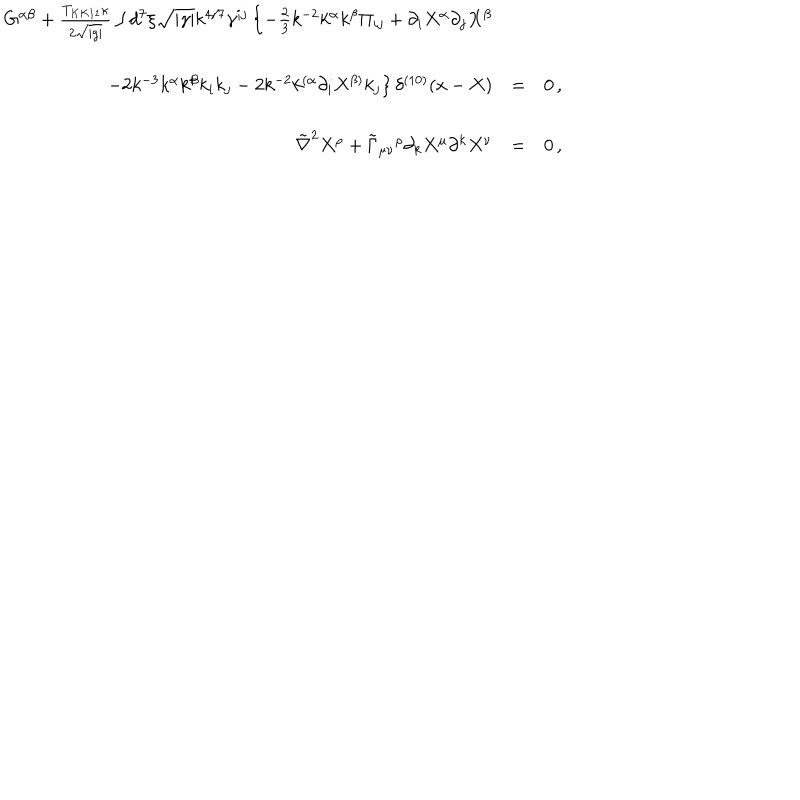 G^{\alpha\beta} + \frac{T_{KK11}\kappa}{2\sqrt{|g|}} \int d^7\xi \sqrt{|\gamma|} k^{4/7} \gamma^{ij} \left\{ -\frac{2}{3} k^{-2} k^\alpha k^\beta \Pi_{ij} + \partial_i X^\alpha \partial_j X^\beta
\left. -2k^{-3} k^\alpha k^\beta k_i k_j - 2k^{-2} k^{(\alpha} \partial_i X^{\beta)} k_j \right\} \delta^{(10)}(x - X) = 0\,,
\tilde{\nabla}^2 X^\rho + \tilde{\Gamma}_{\mu\nu}{}^\rho \partial_k X^\mu \partial^k X^\nu = 0\,,